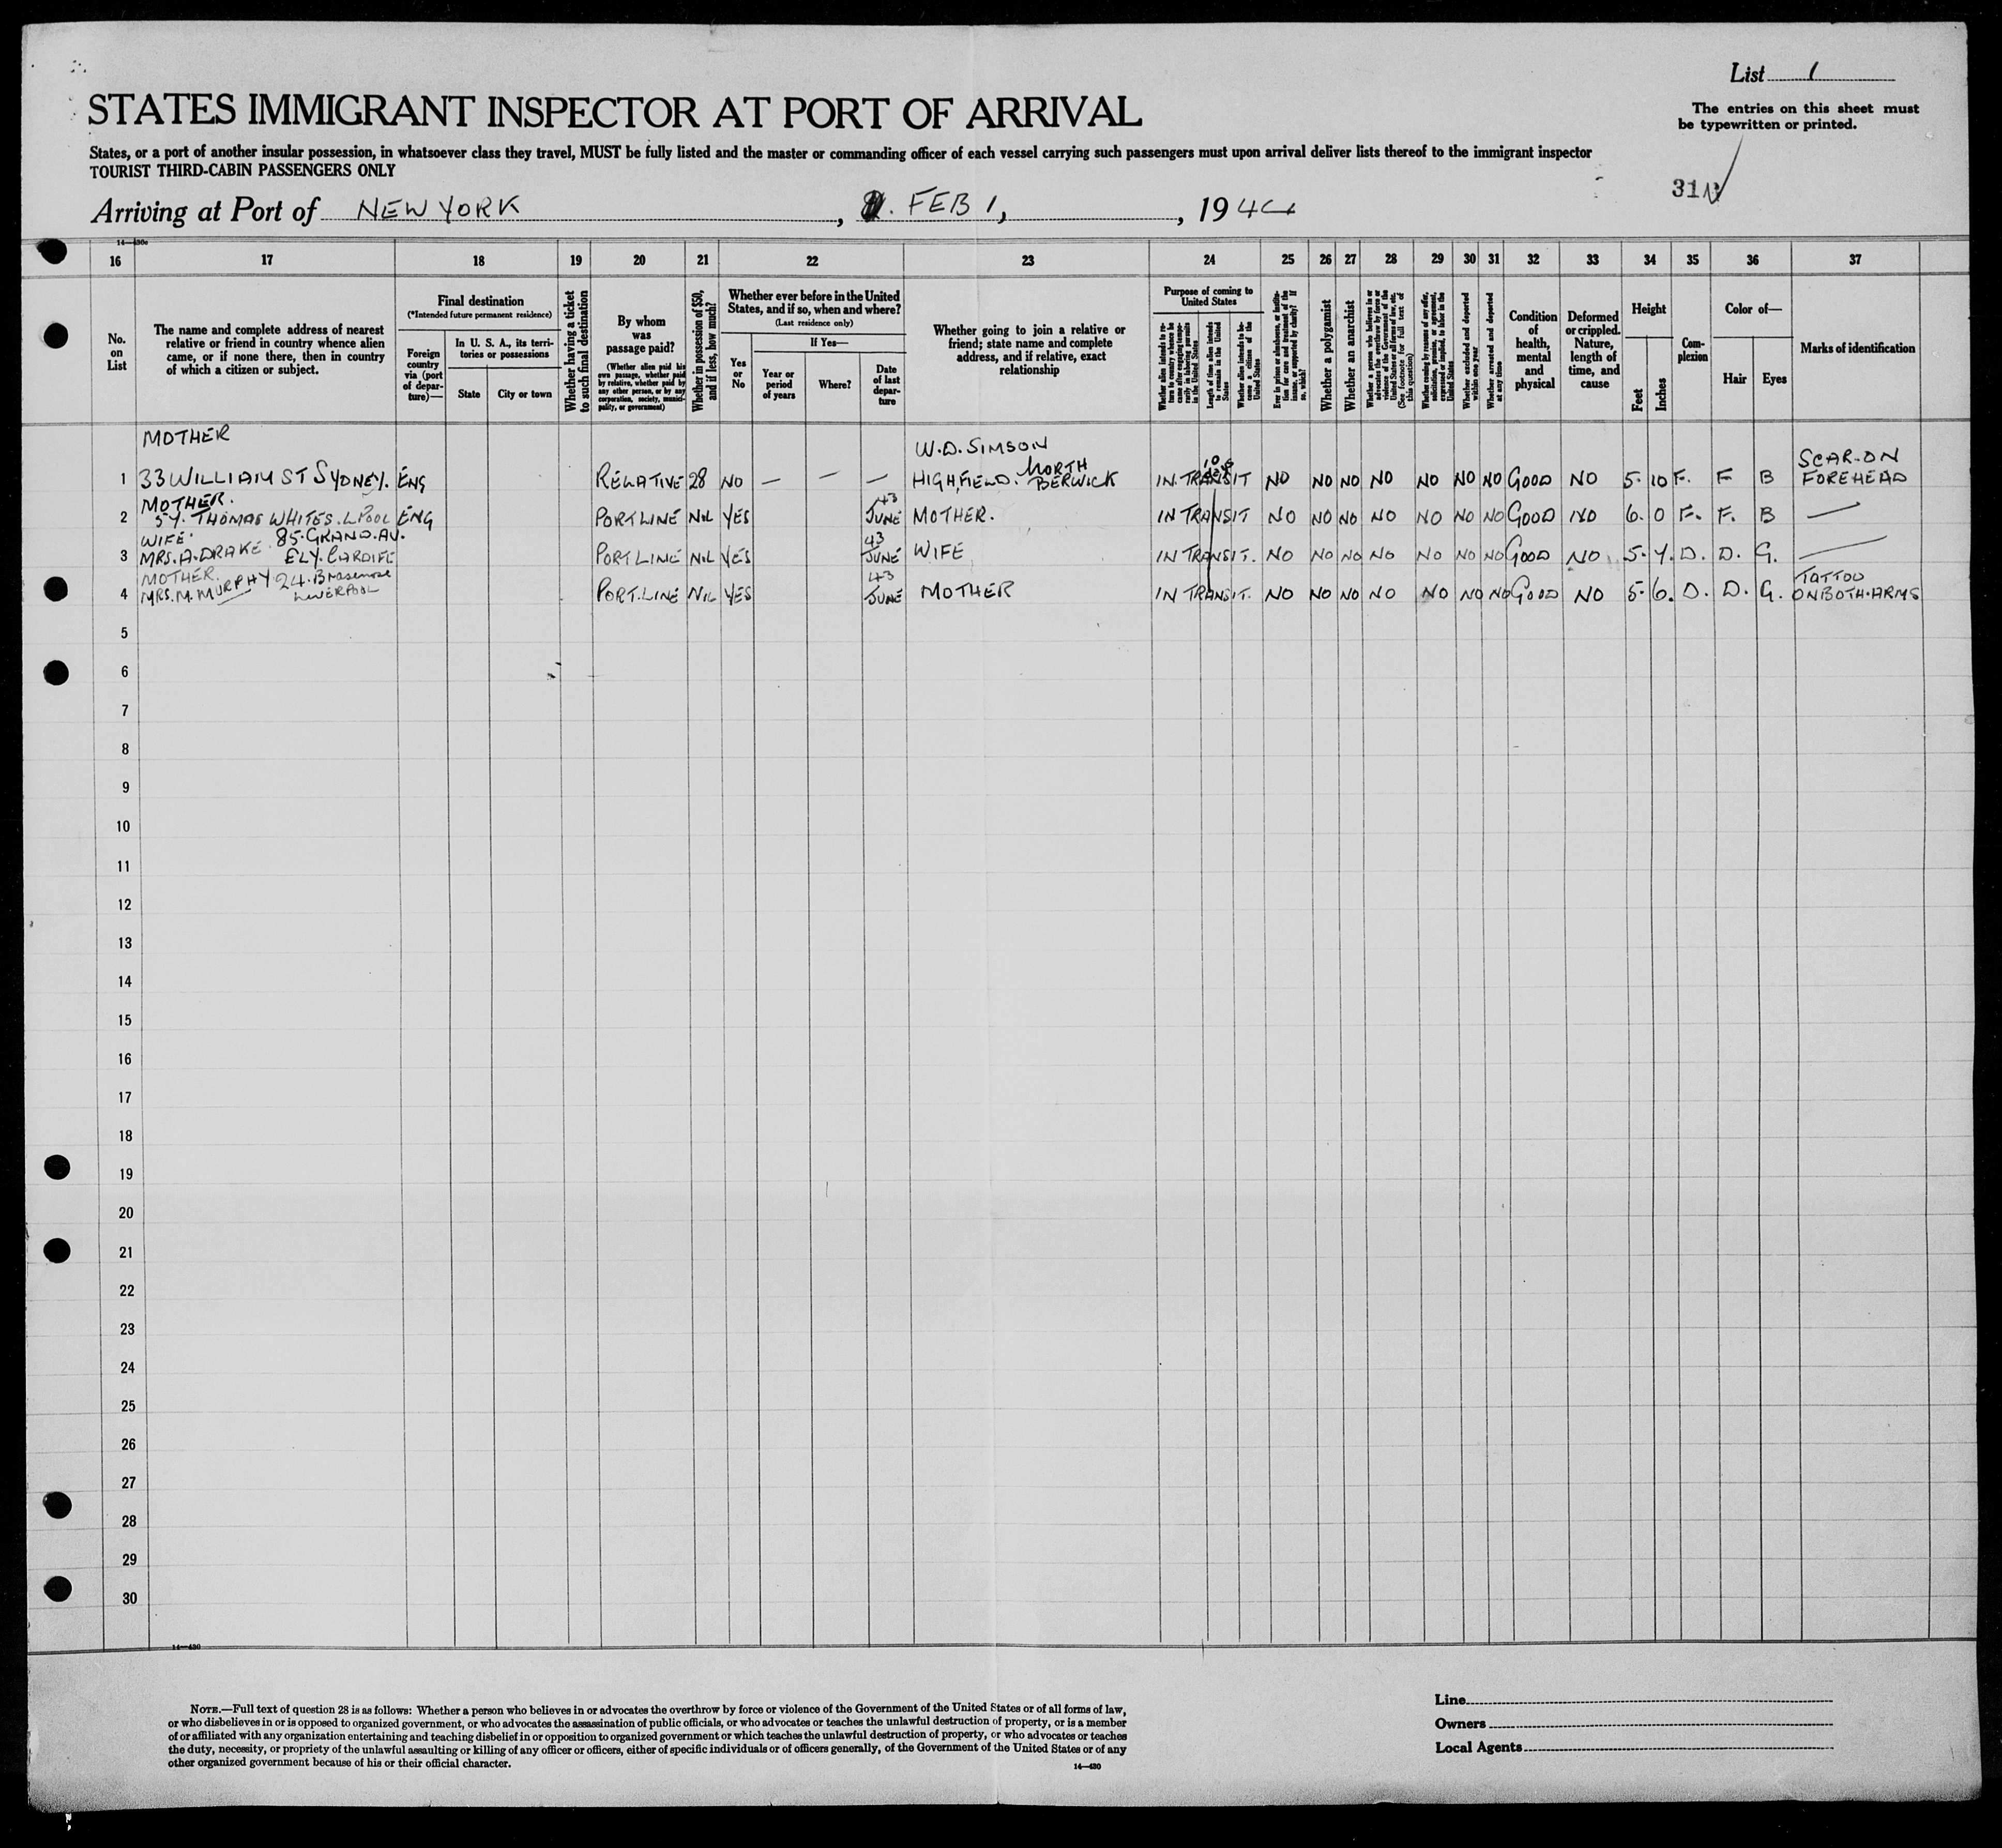 List 1
STATES IMMIGRANT INSPECTOR AT PORT OF ARRIVAL
The entries on this sheet must
be typewritten or printed.
States, or a port of another insular possession, in whatsoever class they travel, MUST be fully listed and the master or commanding officer of each vessel carrying such passengers must upon arrival deliver lists thereof to the immigrant inspector
TOURIST THIRD-CABIN PASSENGERS ONLY
Arriving at Port of NEW YORK, FEB 1, , 1944
16 17 18 19 20 21 22 23 24 25 26 27 28 29 30 31 32 33 34 35 36 37
No. on List
The name and complete address of nearest
relative or friend in country whence alien
came, or if none there, then in country
of which a citizen or subject.
Final destination
(*Intended future permanent residence)
Foreign country via (port of departure)—
In U. S. A., its territories or possessions
State
City or town
Whether having a ticket to such final destination
By whom was passage paid?
(Whether alien paid his own passage, whether paid by relative, whether paid by any other person, or by any corporation, society, municipality, or government)
Whether in possession of $50, and if less, how much?
Whether ever before in the United
States, and if so, when and where?
(Last residence only)
Yes or No
If Yes—
Year or period of years
Where?
Date of last departure
Whether going to join a relative or
friend; state name and complete
address, and if relative, exact
relationship
Purpose of coming to United States
Whether alien intends to return to country whence he came after engaging temporarily in laboring pursuits in the United States
Length of time alien intends to remain in the United States
Whether alien intends to become a citizen of the United States
Ever in prison or almshouse, or institution for care and treatment of the insane, or supported by charity? If so, which?
Whether a polygamist
Whether an anarchist
Whether a person who believes in or advocates the overthrow by force or violence of the Government of the United States or all forms of law, etc. (See footnote for full text of this question)
Whether coming by reasons of any offer, solicitation, promise, or agreement, expressed or implied, to labor in the United States
Whether excluded and deported within one year
Whether arrested and deported at any time
Condition of health, mental and physical
Deformed or crippled. Nature, length of time, and cause
Height
Feet
Inches
Complexion
Color of—
Hair
Eyes
Marks of identification
MOTHER W.D. SIMSON
1 33 WILLIAM ST SYDNEY. ENG RELATIVE 28 NO — — — HIGHFIELD. NORTH BERWICK IN TRANSIT NO NO NO NO NO NO NO GOOD NO 5 10 F. F B SCAR ON FOREHEAD
MOTHER.
2 THOMAS WHITE S. LPOOL ENG PORT LINE NIL YES 43 JUNE MOTHER. IN TRANSIT NO NO NO NO NO NO NO GOOD NO 6. 0 F. F. B —
WIFE 85 GRAND. AV.
3 MRS. A. DRAKE ELY. CARDIFF PORT LINE NIL YES 43 JUNE WIFE IN TRANSIT. NO NO NO NO NO NO NO GOOD NO 5. D. D. G. —
MOTHER.
4 MRS. M. MURPHY 24 Brasenose LIVERPOOL PORT LINE NIL YES 43 JUNE MOTHER IN TRANSIT. NO NO NO NO NO NO NO GOOD NO 5. 6. D. D. G. TATTOO ON BOTH ARMS
5
6
7
8
9
10
11
12
13
14
15
16
17
18
19
20
21
22
23
24
25
26
27
28
29
30
14—430
NOTE.—Full text of question 28 is as follows: Whether a person who believes in or advocates the overthrow by force or violence of the Government of the United States or of all forms of law,
or who disbelieves in or is opposed to organized government, or who advocates the assassination of public officials, or who advocates or teaches the unlawful destruction of property, or is a member
of or affiliated with any organization entertaining and teaching disbelief in or opposition to organized government or which teaches the unlawful destruction of property, or who advocates or teaches
the duty, necessity, or propriety of the unlawful assaulting or killing of any officer or officers, either of specific individuals or of officers generally, of the Government of the United States or of any
other organized government because of his or their official character.
14—430
Line
Owners
Local Agents